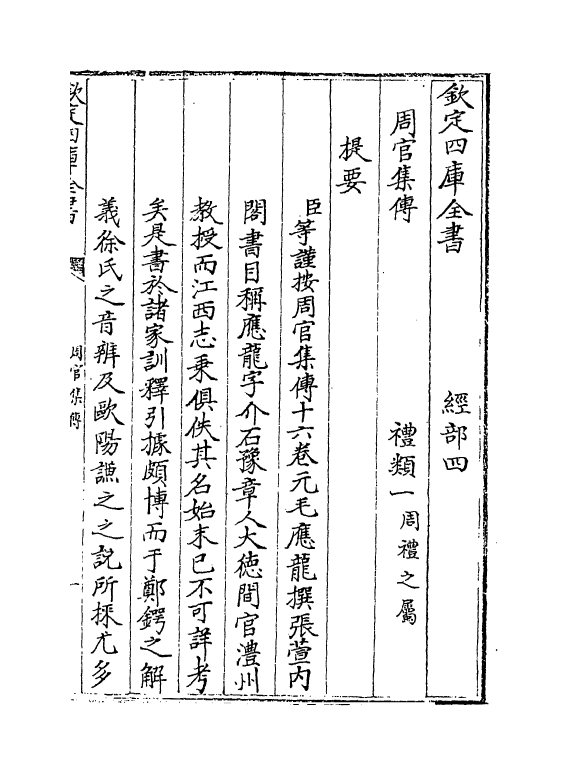 欽定四庫全書　經部四
周官集傳　禮類一周禮之屬
提要
臣等謹按周官集傳十六卷元毛應龍撰張萱内
閣書目稱應龍字介石豫章人大徳間官澧州
教授而江西志乗俱佚其名始末已不可詳考
矣是書於諸家訓釋引據頗博而于鄭鍔之解
義徐氏之音辨及歐陽謙之之説所採尤多
欽定四庫全書　提要　周官集傳　一